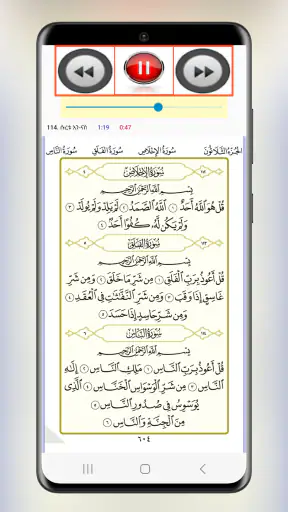 114. ሱረቱ አን-ናስ 1:19 0:47
الجُزْءُ الثَّلَاثُونَ سُورَةُ الإِخْلَاصِ سُورَةُ الفَلَقِ سُورَةُ النَّاسِ
١١٢ سُورَةُ الإِخْلَاصِ ٤
بِسْمِ ٱللَّهِ ٱلرَّحْمَٰنِ ٱلرَّحِيمِ
قُلْ هُوَ ٱللَّهُ أَحَدٌ ١ ٱللَّهُ ٱلصَّمَدُ ٢ لَمْ يَلِدْ وَلَمْ يُولَدْ ٣
وَلَمْ يَكُن لَّهُۥ كُفُوًا أَحَدٌۢ ٤
١١٣ سُورَةُ الفَلَقِ ٥
بِسْمِ ٱللَّهِ ٱلرَّحْمَٰنِ ٱلرَّحِيمِ
قُلْ أَعُوذُ بِرَبِّ ٱلْفَلَقِ ١ مِن شَرِّ مَا خَلَقَ ٢ وَمِن شَرِّ
غَاسِقٍ إِذَا وَقَبَ ٣ وَمِن شَرِّ ٱلنَّفَّٰثَٰتِ فِى ٱلْعُقَدِ ٤
وَمِن شَرِّ حَاسِدٍ إِذَا حَسَدَ ٥
١١٤ سُورَةُ النَّاسِ ٦
بِسْمِ ٱللَّهِ ٱلرَّحْمَٰنِ ٱلرَّحِيمِ
قُلْ أَعُوذُ بِرَبِّ ٱلنَّاسِ ١ مَلِكِ ٱلنَّاسِ ٢ إِلَٰهِ
ٱلنَّاسِ ٣ مِن شَرِّ ٱلْوَسْوَاسِ ٱلْخَنَّاسِ ٤ ٱلَّذِى
يُوَسْوِسُ فِى صُدُورِ ٱلنَّاسِ ٥
مِنَ ٱلْجِنَّةِ وَٱلنَّاسِ ٦
٦٠٤